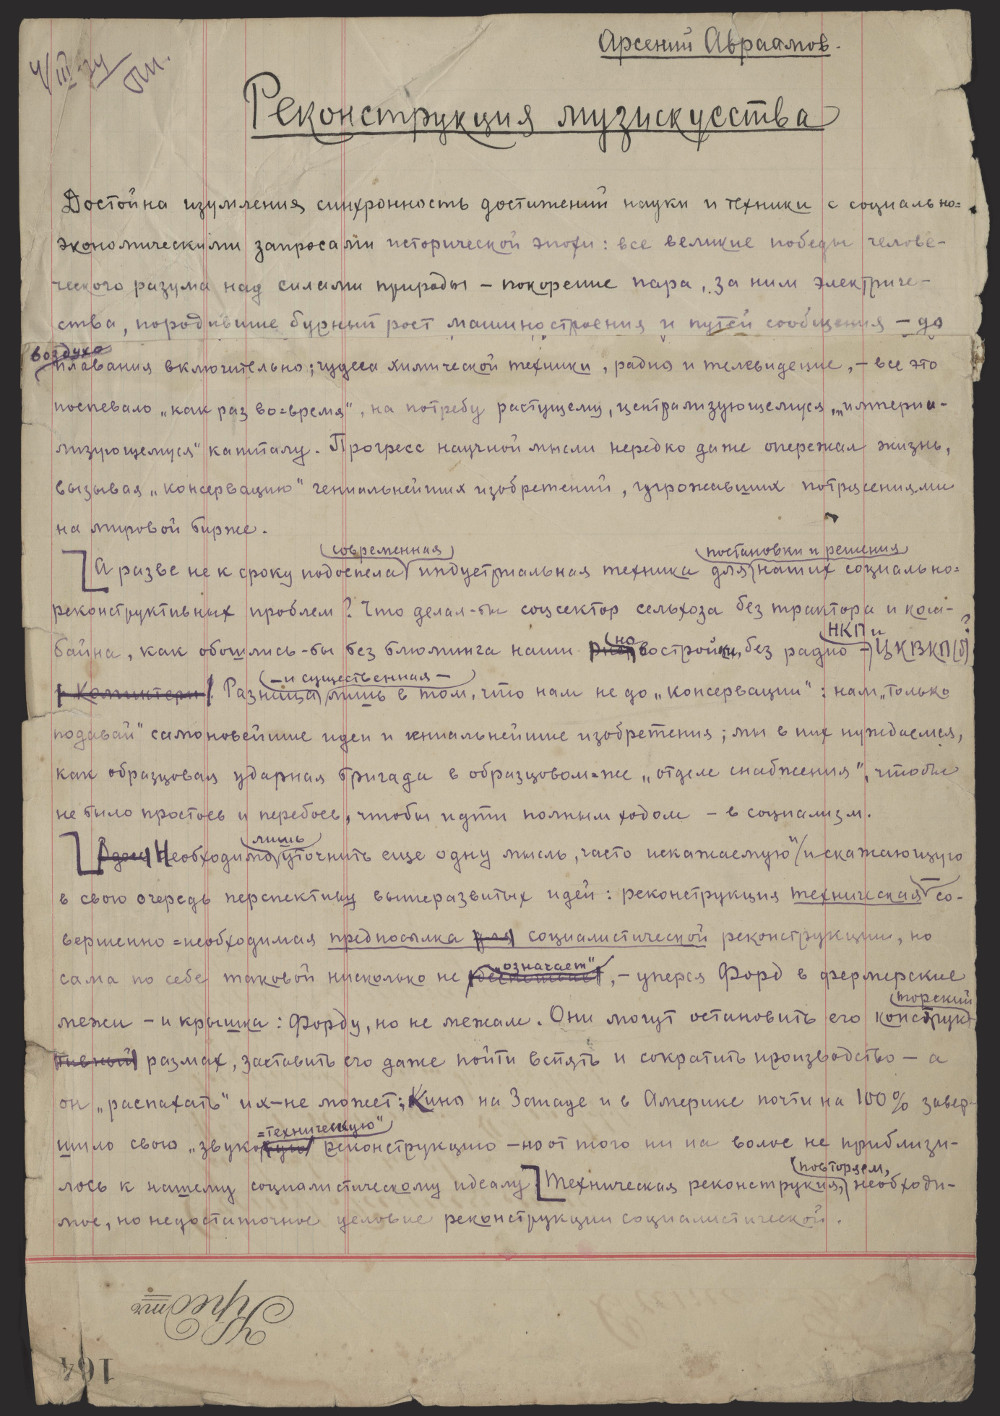 Арсений Авраамов.
Реконструкция музискусства
Достойна изумления синхронность достижений науки и техники с социально=
экономическими запросами исторической эпохи: все великие победы челове-
ческого разума над силами природы – покорение пара, за ним электриче-
ства, породившие бурный рост машиностроения и путей сообщения – до
воздухо
плавания включительно; чудеса химической техники, радио и телевидение, – все это
поспевало „как раз во=время", на потребу растущему, централизующемуся, „импери-
лизующемуся" капиталу. Прогресс научной мысли нередко даже опережал жизнь,
вызывая „консервацию" гениальнейших изобретений, угрожавших потрясениями
на мировой бирже.
современная постановки и решения
А разве не к сроку подоспела индустриальная техника для наших социально=
реконструктивных проблем? Что делал-бы соцсектор сельхоза без трактора и ком-
но НКП и ?
байна, как обошлись-бы без блюминга наши востройки, без радио – ЦКВКП(б)
– и существенная –
Коминтерн Разница лишь в том, что нам не до „консервации": нам „только
подавай" самоновейшие идеи и гениальнейшие изобретения; мы в них нуждаемся,
как образцовая ударная бригада в образцовом=же „отделе снабжения", чтобы
не было простоев и перебоев, чтобы идти полным ходом – в социализм.
лишь
Необходимо уточнить еще одну мысль, часто искажаемую и искажающую
в свою очередь перспективу вышеразвитых идей: реконструкция техническая – со-
вершенно=необходимая предпосылка для социалистической реконструкции, но
„означает"
сама по себе таковой нисколько не , – уперся Форд в фермерские
торский
межи – и крышка: Форду, но не межам. Они могут остановить его конструк-
тивный размах, заставить его даже пойти вспять и сократить производство – а
он „распахать" их – не может; Кино на Западе и в Америке почти на 100% завер-
=техническую"
шило свою „звуковую реконструкцию – но от того ни на волос не приблизи-
повторяем,
лось к нашему социалистическому идеалу Техническая реконструкция, необходи-
мое, но недостаточное условие реконструкции социалистической.
Кредитъ
164